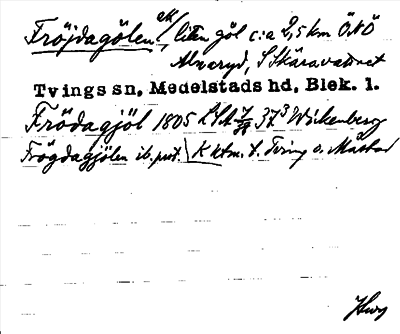 Fröjdagölen, ek, liten göl c:a 2,5 km ÖNÖ
Alnaryd, S Skäravattnet
Tvings sn, Medelstads hd, Blek. l.
Frödagjöl 1805 37³ Wickenberg
Frögdagjölen ib. prt. K ktm. t. Tving o.